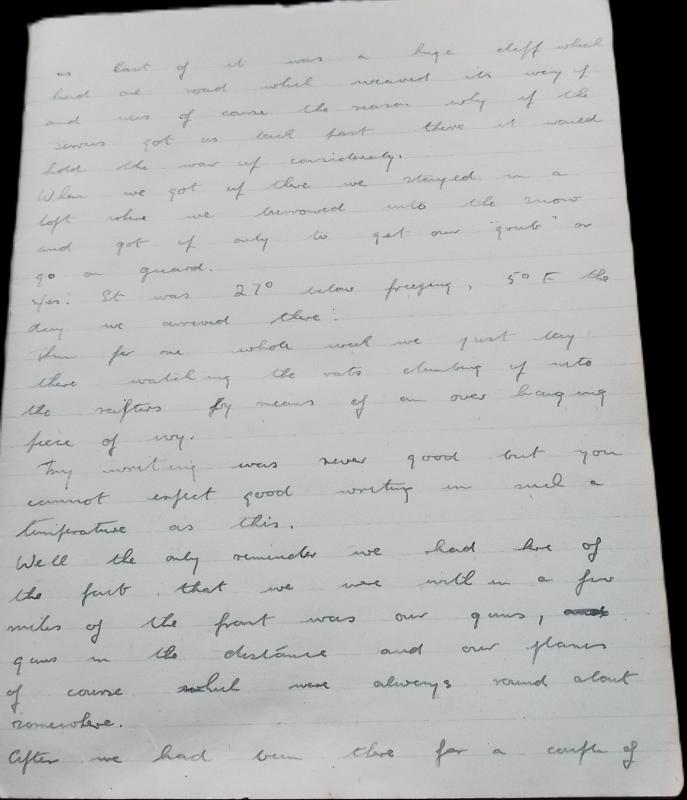 as part of it was a huge cliff which
had one road which weaved its way up
and was of course the reason why if the
got as back past there it would
hold the war up considerably.
When we got up there we stayed in a
loft where we burrowed into the snow
and got up only to get our "grub" or
go on guard.
Yes! It was 27° below freezing, 5° F the
day we arrived there!
Then for one whole week we just lay
there watching the rats climbing up into
the rafters by means of an over hanging
piece of ivy.
My writing was never good but you
cannot expect good writing in such a
temperature as this.
Well the only reminder we had here of
the fact that we were with in a few
miles of the front was our guns,
guns in the distance and our planes
of course which were always round about
somewhere.
After we had been there for a couple of